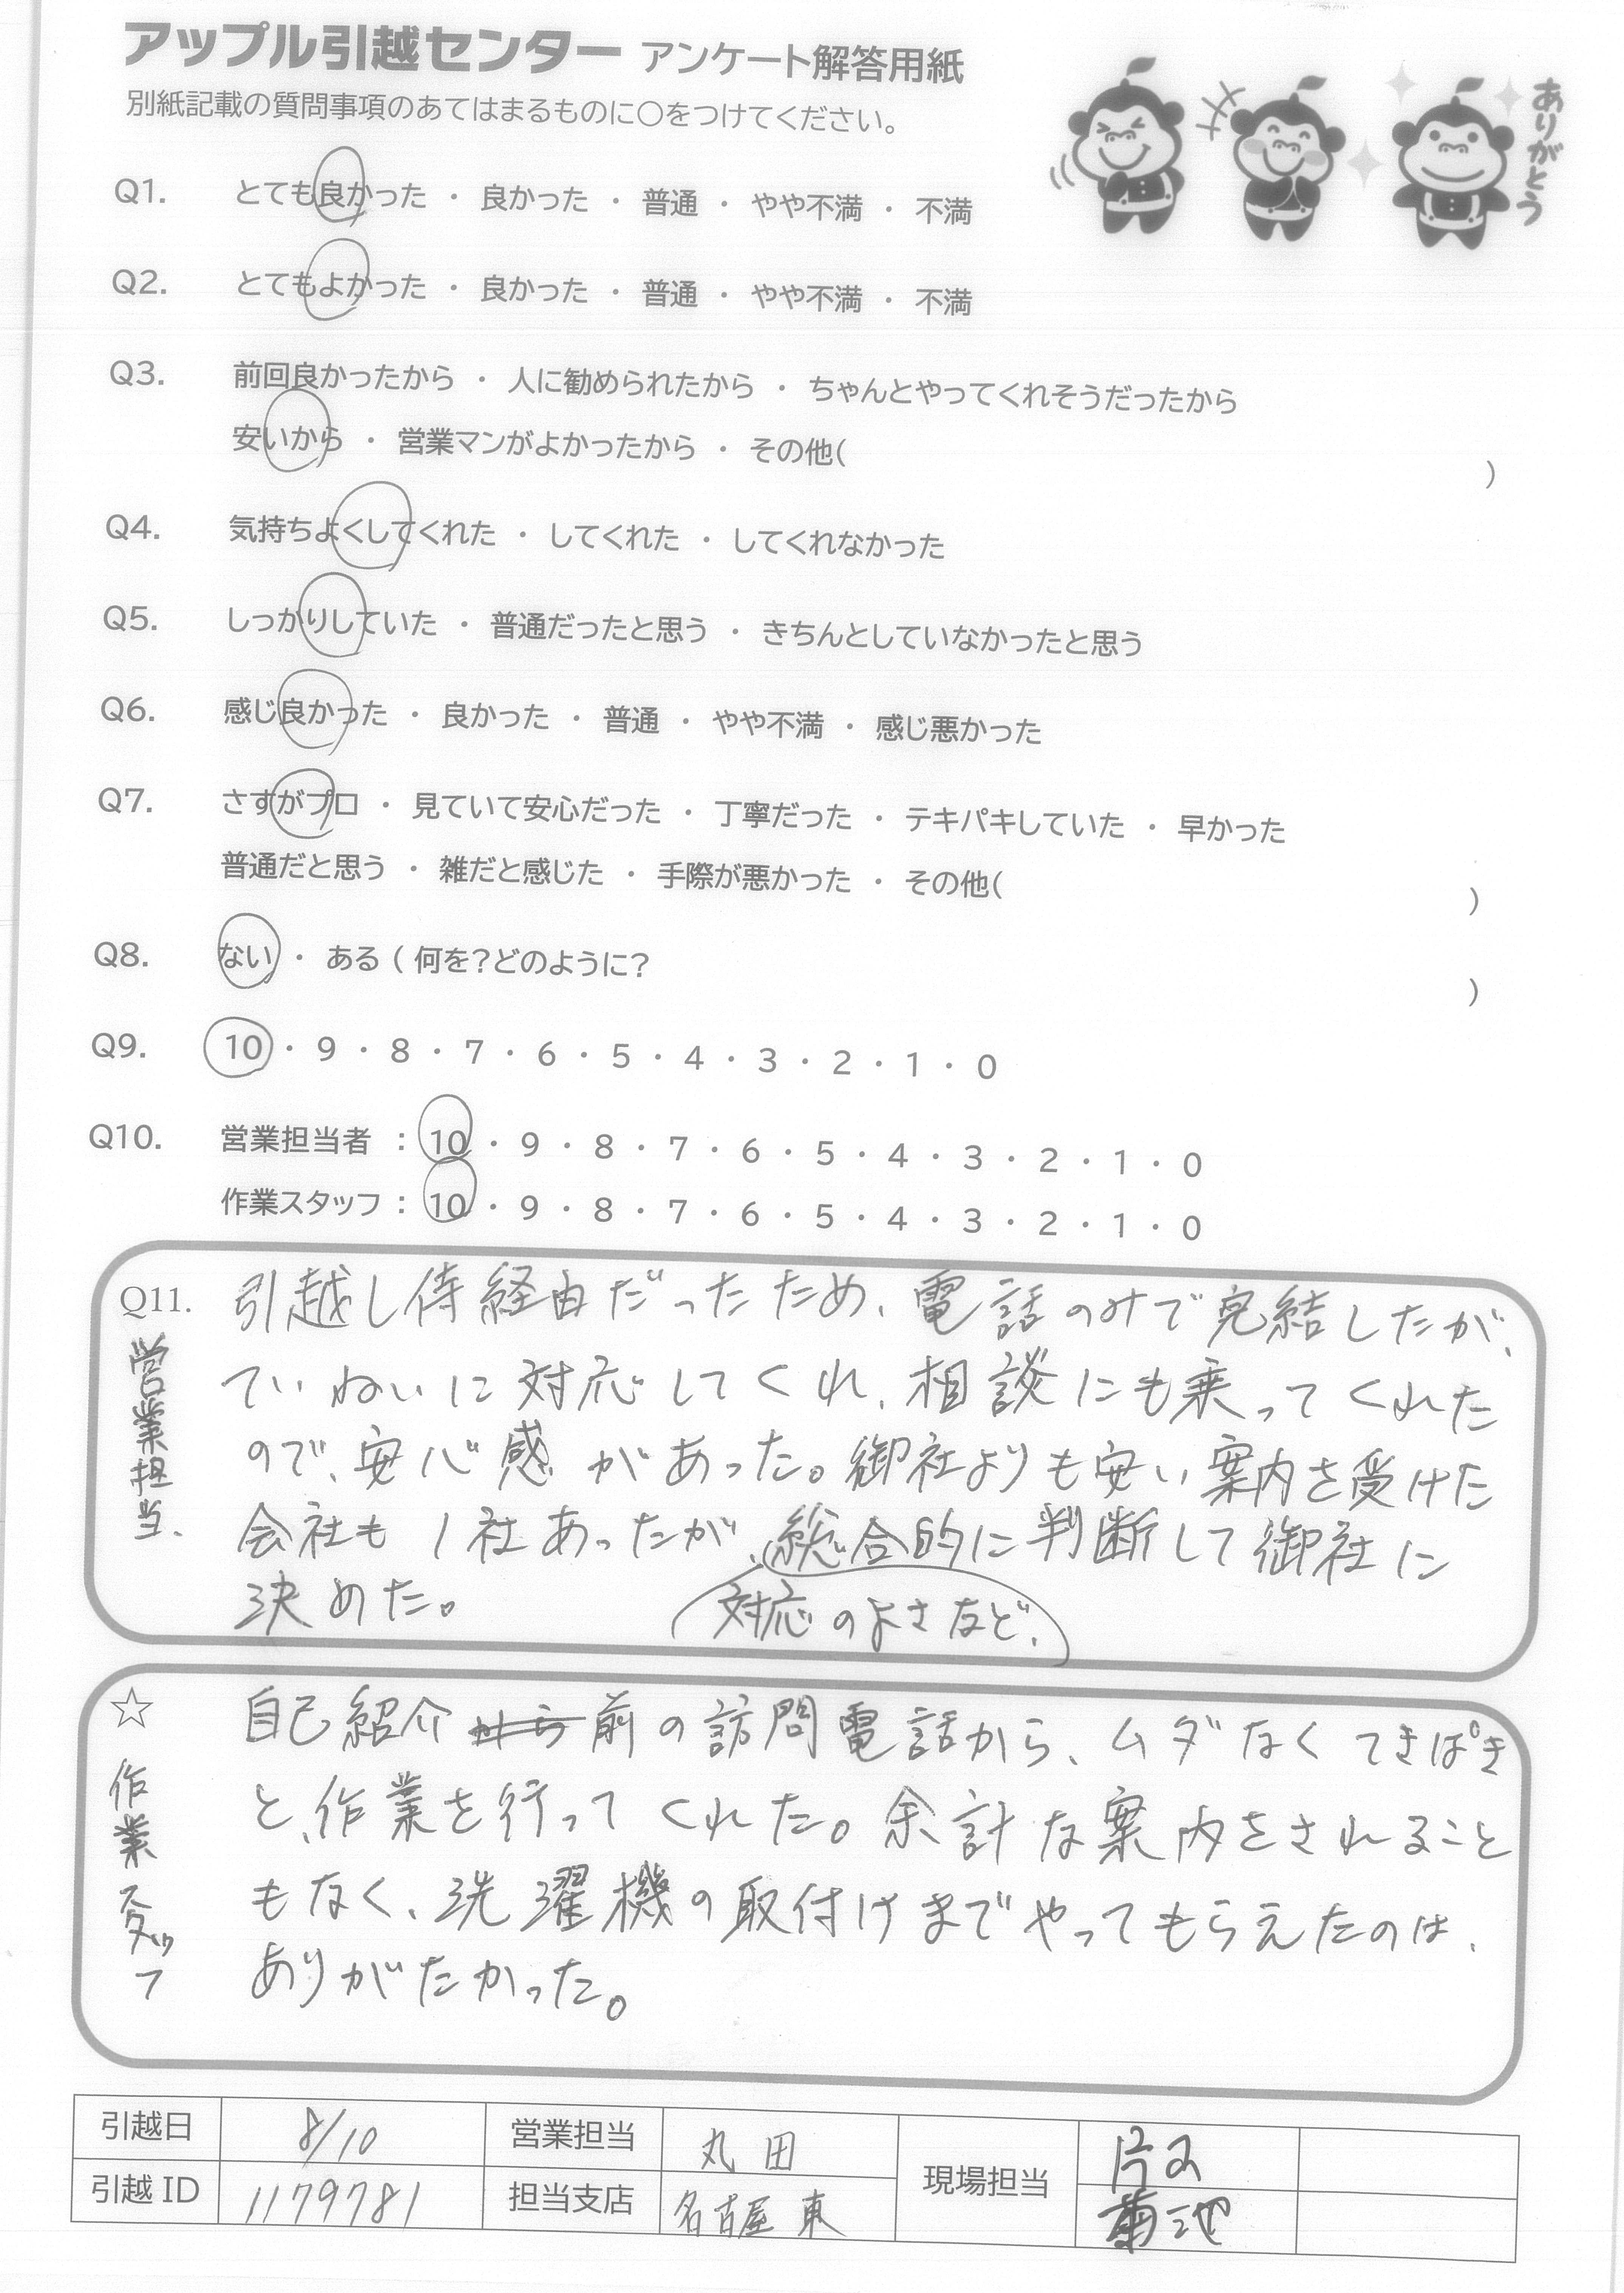 アップル引越センター アンケート解答用紙
別紙記載の質問事項のあてはまるものに○をつけてください。
ありがとう
Q1. とても良かった ・ 良かった ・ 普通 ・ やや不満 ・ 不満
Q2. とてもよかった ・ 良かった ・ 普通 ・ やや不満 ・ 不満
Q3. 前回良かったから ・ 人に勧められたから ・ ちゃんとやってくれそうだったから
安いから ・ 営業マンがよかったから ・ その他( )
Q4. 気持ちよくしてくれた ・ してくれた ・ してくれなかった
Q5. しっかりしていた ・ 普通だったと思う ・ きちんとしていなかったと思う
Q6. 感じ良かった ・ 良かった ・ 普通 ・ やや不満 ・ 感じ悪かった
Q7. さすがプロ ・ 見ていて安心だった ・ 丁寧だった ・ テキパキしていた ・ 早かった
普通だと思う ・ 雑だと感じた ・ 手際が悪かった ・ その他( )
Q8. ない ・ ある ( 何を?どのように? )
Q9. 10 ・ 9 ・ 8 ・ 7 ・ 6 ・ 5 ・ 4 ・ 3 ・ 2 ・ 1 ・ 0
Q10. 営業担当者 : 10 ・ 9 ・ 8 ・ 7 ・ 6 ・ 5 ・ 4 ・ 3 ・ 2 ・ 1 ・ 0
作業スタッフ : 10 ・ 9 ・ 8 ・ 7 ・ 6 ・ 5 ・ 4 ・ 3 ・ 2 ・ 1 ・ 0
Q11.
営業担当、
引越し侍経由だったため、電話のみで完結したが、
ていねいに対応してくれ、相談にも乗ってくれた
ので、安心感があった。御社よりも安い案内を受けた
会社も1社あったが、総合的に判断して御社に
決めた。
対応のよさなど、
☆
作業スタッフ
自己紹介から前の訪問電話から、ムダなくてきぱき
と、作業を行ってくれた。余計な案内をされること
もなく、洗濯機の取付けまでやってもらえたのは、
ありがたかった。
引越日 8/10 営業担当 丸田 現場担当
引越ID 1179781 担当支店 名古屋東 菊池